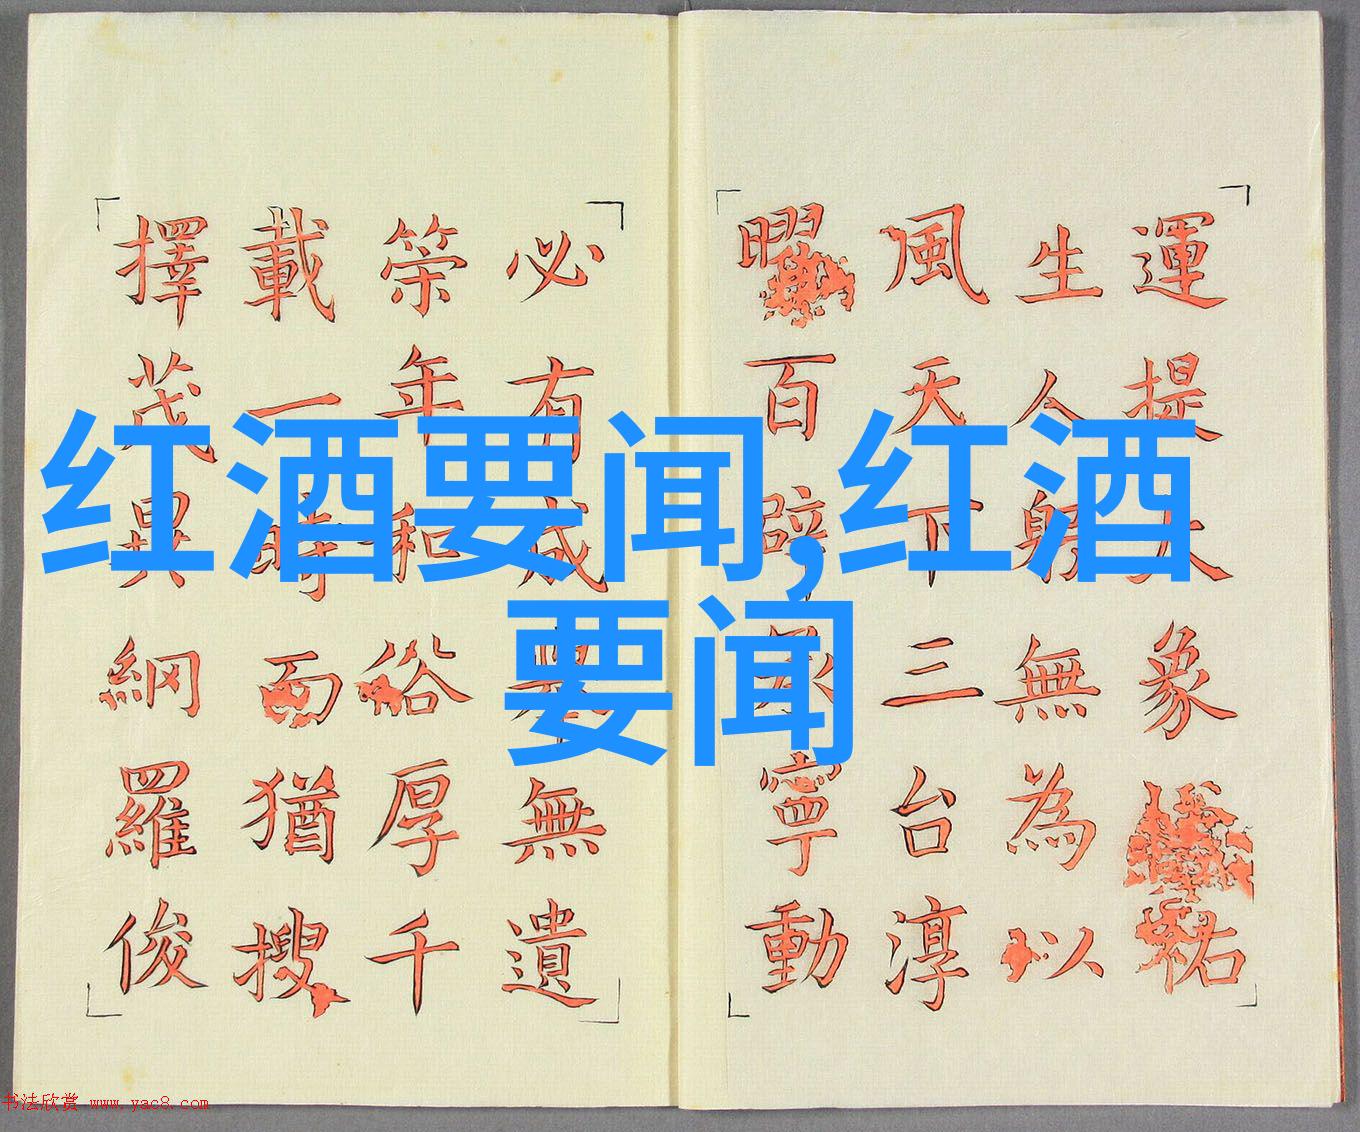 红酒要闻,红酒
要闻
運提大象祐
生人歸無為以
風天下三台淳
曜百辟寧動
必有成無遺
筞年和俗厚千
載一時而猶搜
擇茂異網羅俊
书法欣赏 www.yac8.com